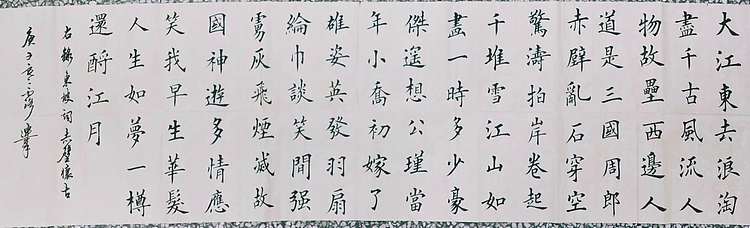 大江東去浪淘
盡千古風流人
物故壘西邊人
道是三國周郎
赤壁亂石穿空
驚濤拍岸卷起
千堆雪江山如
畫一時多少豪
傑遥想公瑾當
年小喬初嫁了
雄姿英發羽扇
綸巾談笑間强
虜灰飛煙滅故
國神遊多情應
笑我早生華髮
人生如夢一樽
還酹江月
右錄東坡詞赤壁懷古
庚子